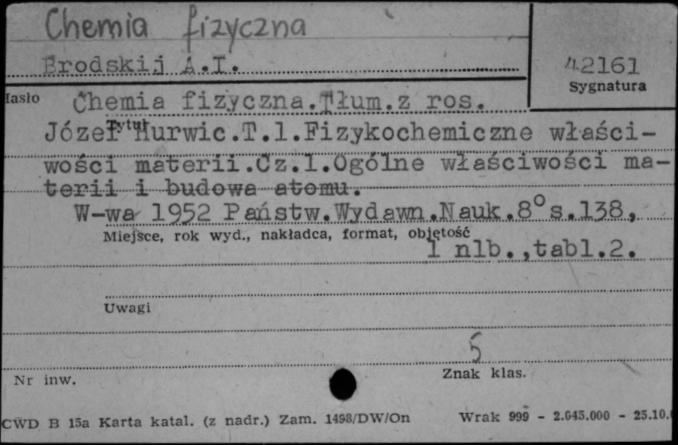 Chemia fizyczna
Brodskij A.I.
42161
Sygnatura
Hasło
Chemia fizyczna.Tłum.z ros.
Tytuł
Józef Hurwic.T.1.Fizykochemiczne właści-
wości materii.Cz.1.Ogólne właściwości ma-
terii i budowa atomu.
W-wa 1952 Państw.Wydawn.Nauk.8° s.138,
Miejsce, rok wyd., nakładca, format, objętość
1 nlb.,tabl.2.
Uwagi
5
Nr inw.
Znak klas.
CWD B 15a Karta katal. (z nadr.) Zam. 1498/DW/On
Wrak 999 - 2.645.000 - 25.10.